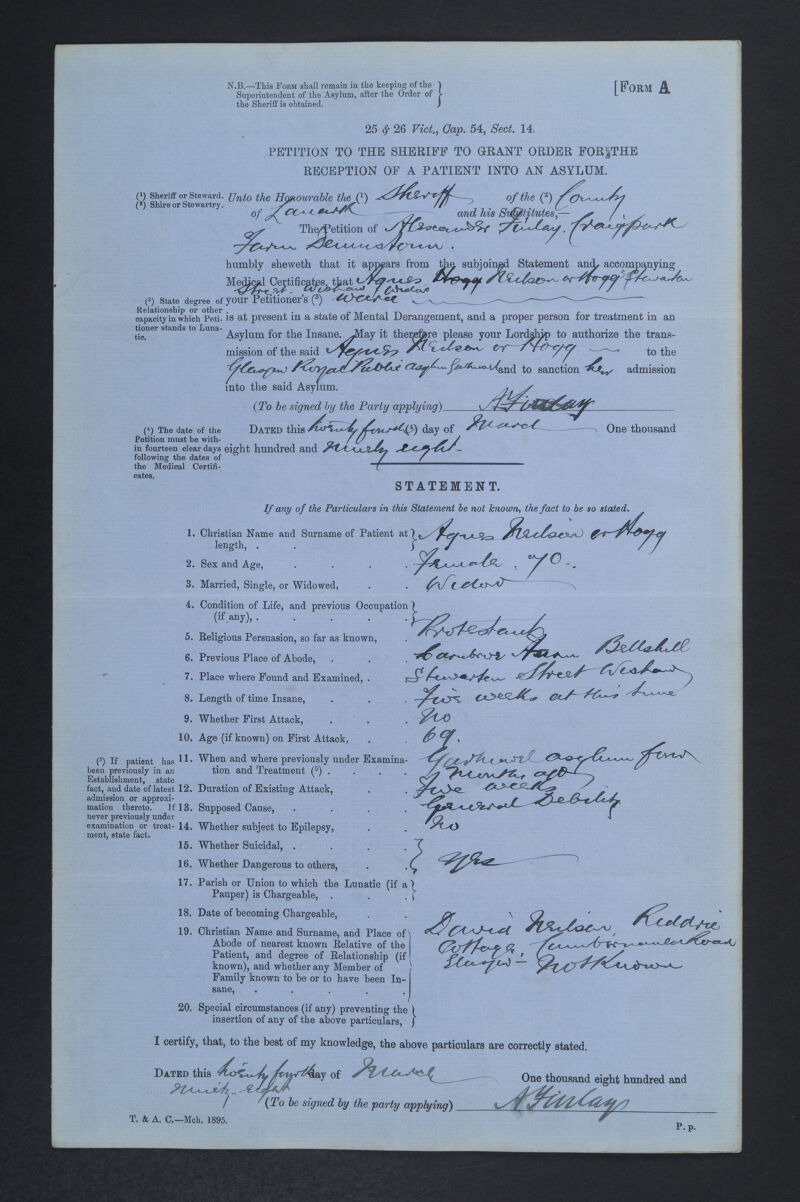 N.B.—This Form shall remain in the keeping of the
Superintendent of the Asylum, after the Order of
the Sheriff is obtained.
[Form A
25 & 26 Vict., Cap. 54, Sect. 14.
PETITION TO THE SHERIFF TO GRANT ORDER FOR THE
RECEPTION OF A PATIENT INTO AN ASYLUM.
(¹) Sheriff or Steward.
(²) Shire or Stewartry.
Unto the Honourable the (¹) Sheriff of the (²) County
of Lanark and his Substitutes,—
The Petition of Alexander Finlay, Craigpark
Farm Dennistoun.
humbly sheweth that it appears from the subjoined Statement and accompanying
Medical Certificates, that Agnes Hogg Neilson or Hogg Stewarton
Street Wishaw Widow
(³) State degree of
Relationship or other
capacity in which Peti-
tioner stands to Luna-
tic.
your Petitioner's (³) Ward
is at present in a state of Mental Derangement, and a proper person for treatment in an
Asylum for the Insane. May it therefore please your Lordship to authorize the trans-
mission of the said Agnes Neilson or Hogg to the
Glasgow Royal Public Asylum Gartnavel and to sanction her admission
into the said Asylum.
(To be signed by the Party applying) A Finlay
(⁴) The date of the
Petition must be with-
in fourteen clear days
following the dates of
the Medical Certifi-
cates.
Dated this twenty fourth (⁴) day of March One thousand
eight hundred and ninety eight
STATEMENT.
If any of the Particulars in this Statement be not known, the fact to be so stated.
1. Christian Name and Surname of Patient at
length, . . Agnes Neilson or Hogg
2. Sex and Age, . . . . Female. 70.
3. Married, Single, or Widowed, . . Widow
4. Condition of Life, and previous Occupation
(if any), . . . . .
5. Religious Persuasion, so far as known, . Protestant
6. Previous Place of Abode, . . . Carnbroe Farm Bellshill
7. Place where Found and Examined, . . Stewarton Street Wishaw
8. Length of time Insane, . . . Five weeks at this time
9. Whether First Attack, . . . No
10. Age (if known) on First Attack, . . 69.
(⁵) If patient has
been previously in an
Establishment, state
fact, and date of latest
admission or approxi-
mation thereto. If
never previously under
examination or treat-
ment, state fact.
11. When and where previously under Examina-
tion and Treatment (⁵) . . . . Gartnavel asylum four
months ago
12. Duration of Existing Attack, . . Five weeks
13. Supposed Cause, . . . . General Debility
14. Whether subject to Epilepsy, . . No
15. Whether Suicidal, . . . .
16. Whether Dangerous to others, . . Yes
17. Parish or Union to which the Lunatic (if a
Pauper) is Chargeable, . . .
18. Date of becoming Chargeable, . .
19. Christian Name and Surname, and Place of
Abode of nearest known Relative of the
Patient, and degree of Relationship (if
known), and whether any Member of
Family known to be or to have been In-
sane, . . . . .
David Neilson, Riddrie
Cottage, Cumbernauld Road
Glasgow — Not Known
20. Special circumstances (if any) preventing the
insertion of any of the above particulars,
I certify, that, to the best of my knowledge, the above particulars are correctly stated.
Dated this twenty fourth day of March One thousand eight hundred and
ninety-eight
(To be signed by the party applying) A Finlay
T. & A. C.—Mch. 1895.
P. p.